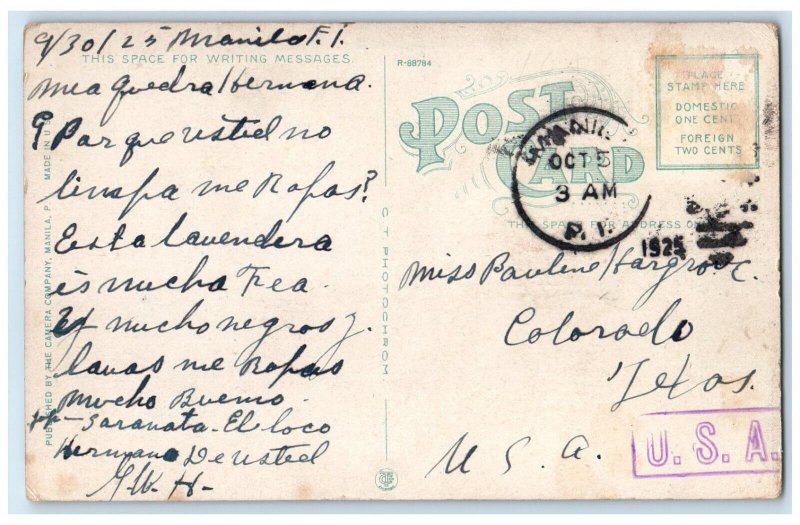 9/30/25 Manila P.I.
THIS SPACE FOR WRITING MESSAGES.
Mea quedra Hermana.
Par que usted no
linspa me Ropas?
Esta lavendera
is mucha Fea.
mucho negros y
lavas me Ropas
Mucho Bueno.
Saranata. El loco
Hermano De usted
PUBLISHED BY THE CAMERA COMPANY, MANILA, P. I. MADE IN U.S.
C T PHOTOCHROM
R-88784
POST CARD
PLACE
STAMP HERE
DOMESTIC
ONE CENT
FOREIGN
TWO CENTS
OCT 5
3 AM
P. I.
1925
THIS SPACE FOR ADDRESS
Miss Pauline Hargrove.
Colorado
Texas.
U. S. A.
U.S.A.